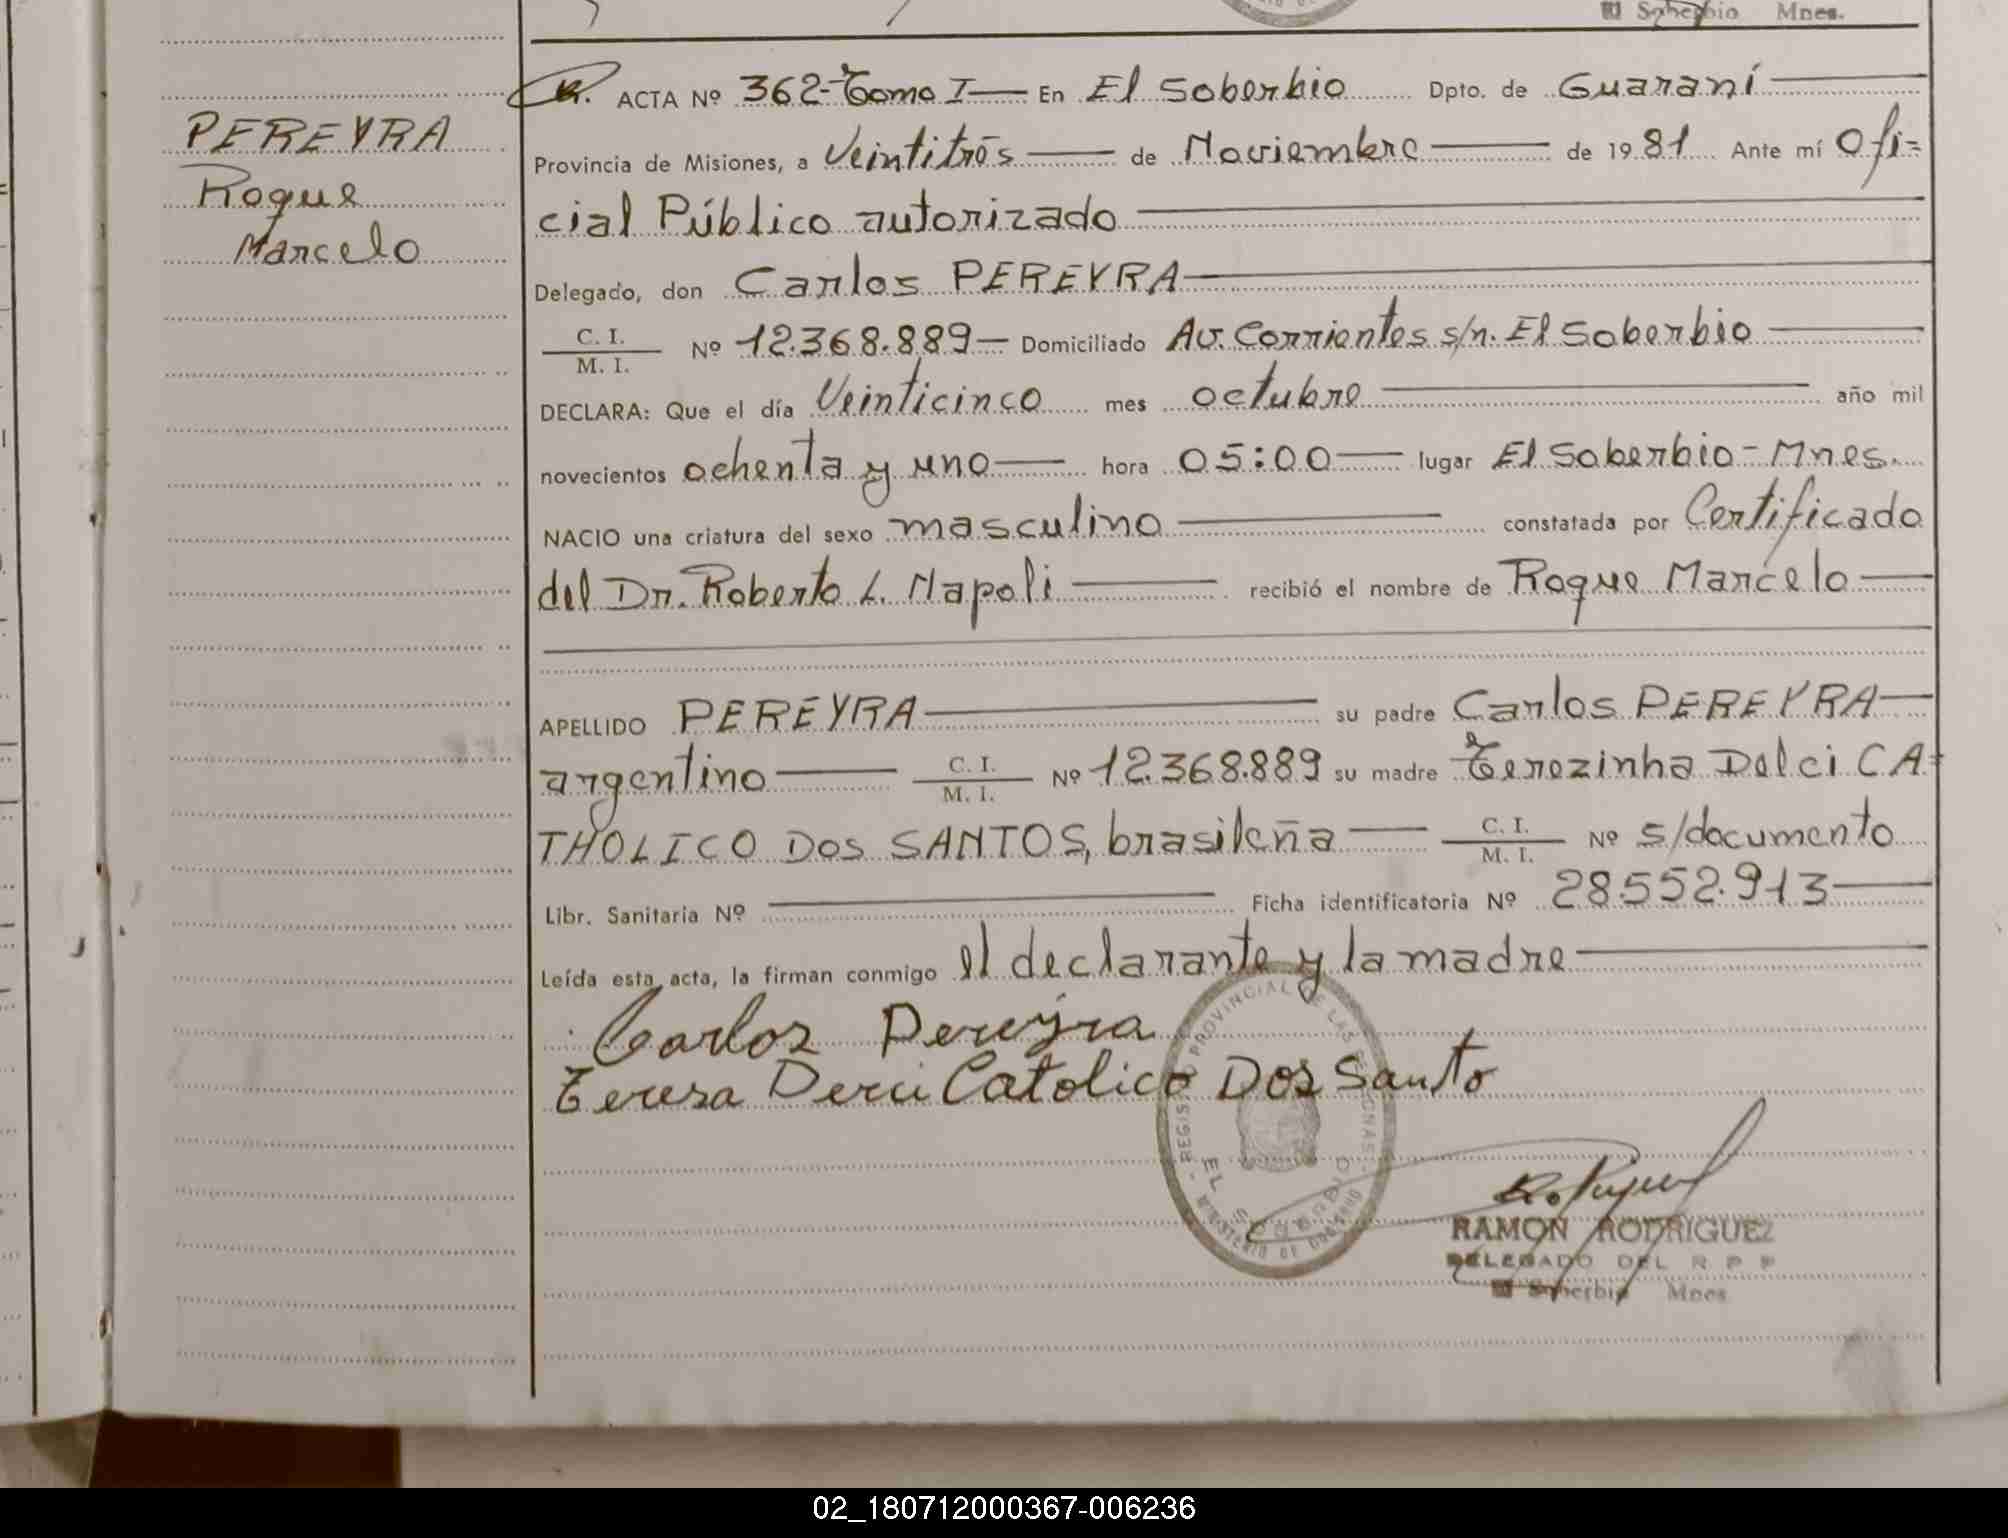 Soberbio Mnes.
PEREYRA
Roque
Marcelo
ACTA Nº 362-Tomo I En El Soberbio Dpto. de Guaraní
Provincia de Misiones, a Veintitrés de Noviembre de 1981 Ante mí Ofi=
cial Público autorizado
Delegado, don Carlos PEREYRA
C. I. / M. I. Nº 12.368.889 Domiciliado Av. Corrientes s/n. El Soberbio
DECLARA: Que el día Veinticinco mes octubre año mil
novecientos ochenta y uno hora 05:00 lugar El Soberbio-Mnes.
NACIO una criatura del sexo masculino constatada por Certificado
del Dr. Roberto L. Napoli recibió el nombre de Roque Marcelo
APELLIDO PEREYRA su padre Carlos PEREYRA
argentino C. I. / M. I. Nº 12.368.889 su madre Terezinha Delci CA=
THOLICO DOS SANTOS, brasileña C. I. / M. I. Nº s/documento
Libr. Sanitaria Nº Ficha identificatoria Nº 28.552.913
Leída esta acta, la firman conmigo el declarante y la madre
Carlos Pereyra
Teresa Derci Catolico Dos Santo
REGISTRO PROVINCIAL DE LAS PERSONAS
EL SOBERBIO
MINISTERIO DE GOBIERNO
RAMON RODRIGUEZ
DELEGADO DEL R P P
El Soberbio Mnes
02_180712000367-006236